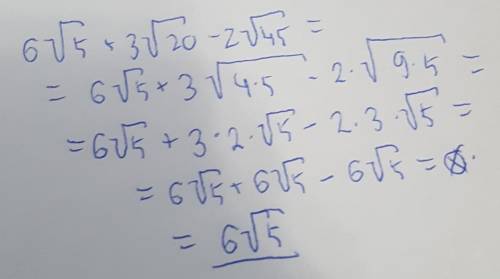 6√5 + 3√20 - 2√45 =
= 6√5 + 3√4·5 - 2·√9·5 =
= 6√5 + 3·2·√5 - 2·3·√5 =
= 6√5 + 6√5 - 6√5 =
= 6√5